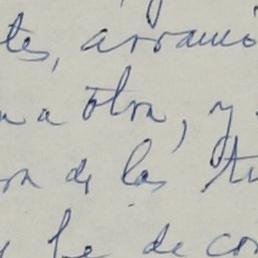 tes, arrancó
na otra, y
on de las tu
y le de con